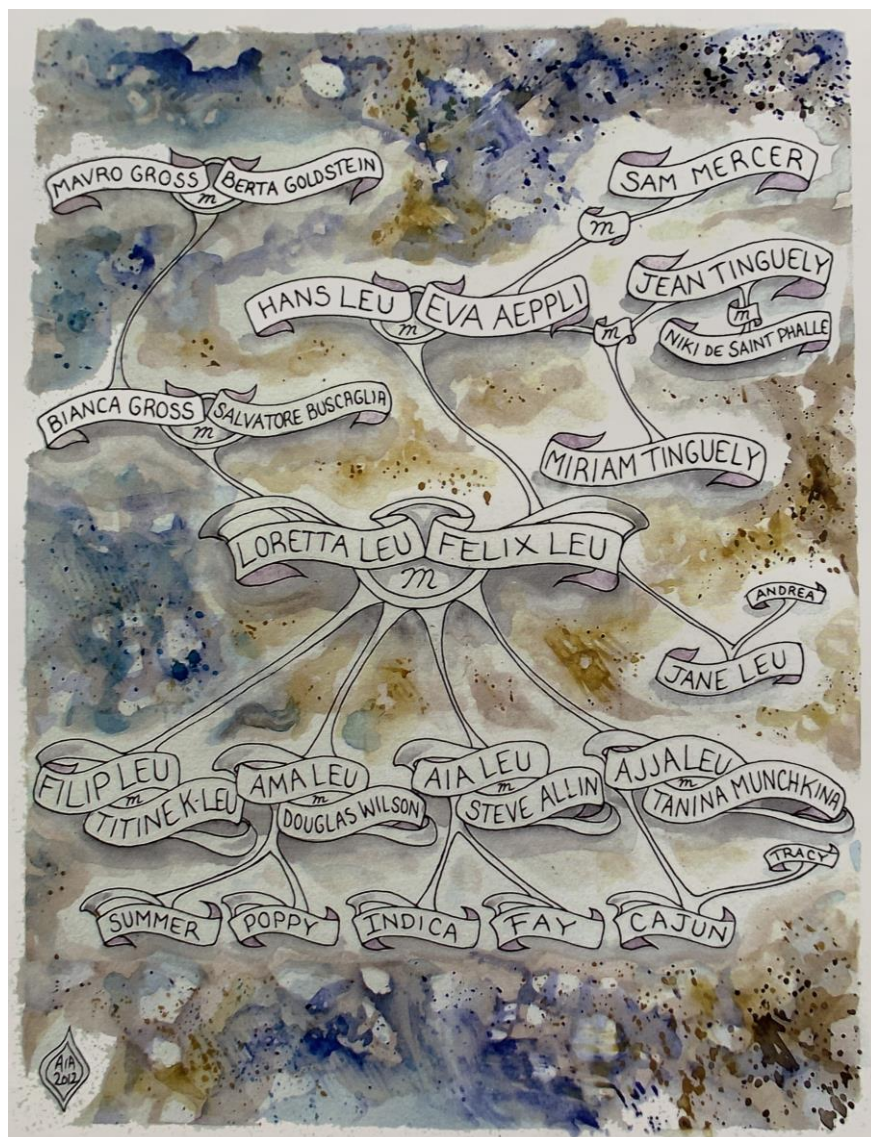 MAVRO GROSS
m
BERTA GOLDSTEIN
SAM MERCER
m
HANS LEU
m
EVA AEPPLI
JEAN TINGUELY
m
m
NIKI DE SAINT PHALLE
BIANCA GROSS
m
SALVATORE BUSCAGLIA
MIRIAM TINGUELY
LORETTA LEU
m
FELIX LEU
ANDREA
JANE LEU
FILIP LEU
m
TITINE K-LEU
AMA LEU
m
DOUGLAS WILSON
AIA LEU
m
STEVE ALLIN
AJJA LEU
m
TANINA MUNCHKINA
TRACY
SUMMER
POPPY
INDICA
FAY
CAJUN
AIA
2012